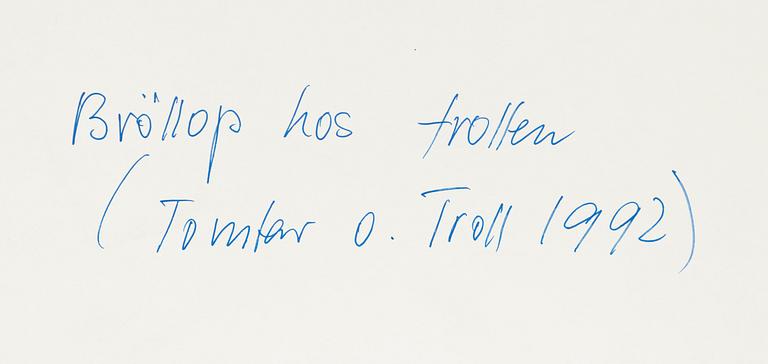 Bröllop hos trollen
(Tomtar o. Troll 1992)